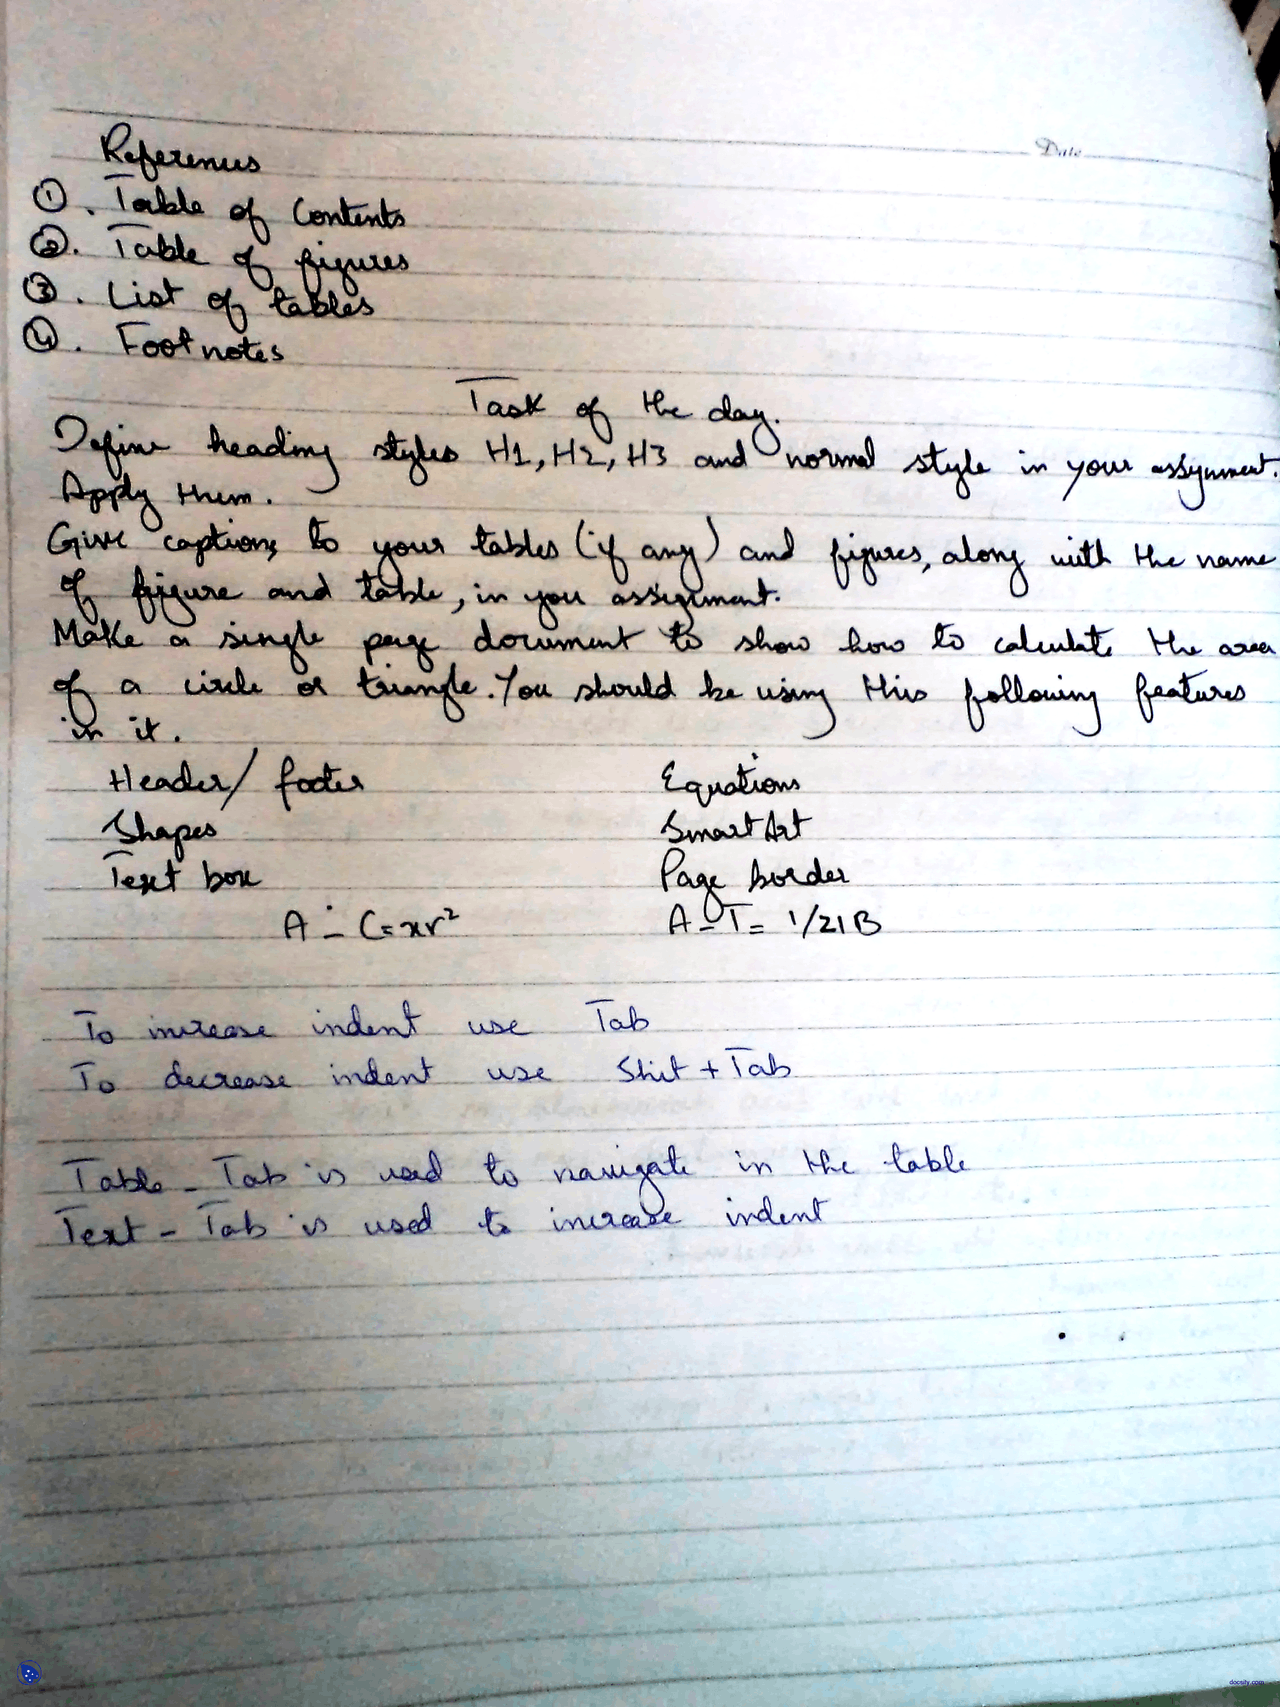 Date
References
①. Table of Contents
②. Table of figures
③. List of tables
④. Footnotes
Task of the day.
Define heading styles H1, H2, H3 and normal style in your assignment.
Apply them.
Give captions to your tables (if any) and figures, along with the name
of figure and table, in you assignment.
Make a single page document to show how to calculate the area
of a circle or triangle. You should be using this following features
in it.
Header/ footer Equations
Shapes SmartArt
Text box Page border
A - C = πr² A - T = 1/2 LB
To increase indent use Tab
To decrease indent use Shit + Tab
Table - Tab is used to navigate in the table
Text - Tab is used to increase indent
docsity.com